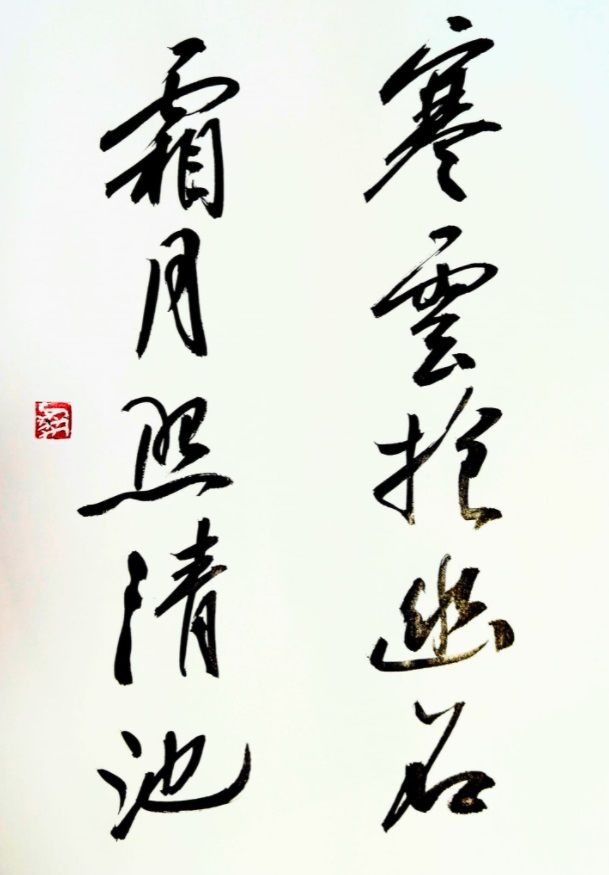 寒雲抱幽石
霜月照清池